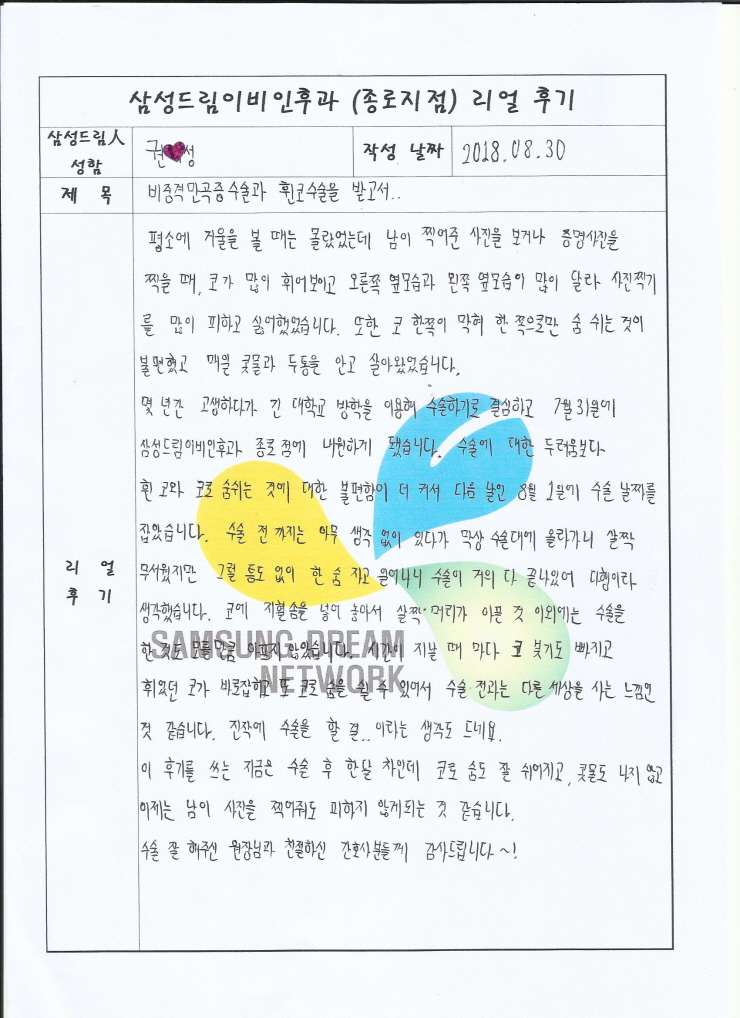 삼성드림이비인후과 (종로지점) 리얼 후기
삼성드림人 성함
권 성
작성 날짜
2018.08.30
제 목
비중격만곡증수술과 휜코수술을 받고서..
리 얼
후 기
평소에 거울을 볼 때는 몰랐었는데 남이 찍어준 사진을 보거나 증명사진을
찍을 때, 코가 많이 휘어보이고 오른쪽 옆모습과 왼쪽 옆모습이 많이 달라 사진찍기
를 많이 피하고 싫어했었습니다. 또한 코 한쪽이 막혀 한 쪽으로만 숨 쉬는 것이
불편했고 매일 콧물과 두통을 안고 살아왔었습니다.
몇 년간 고생하다가 긴 대학교 방학을 이용해 수술하기로 결심하고 7월 31일에
삼성드림이비인후과 종로 점에 내원하게 됐습니다. 수술에 대한 두려움보다
휜 코와 코로 숨쉬는 것에 대한 불편함이 더 커서 다음 날인 8월 1일에 수술 날짜를
잡았습니다. 수술 전 까지는 아무 생각 없이 있다가 막상 수술대에 올라가니 살짝
무서웠지만 그럴 틈도 없이 한 숨 자고 일어나니 수술이 거의 다 끝나있어 다행이라
생각했습니다. 코에 지혈솜을 넣어 놓아서 살짝 머리가 아픈 것 이외에는 수술을
한 것도 모를만큼 아프지 않았습니다. 시간이 지날 때 마다 코 붓기도 빠지고
휘었던 코가 바로잡히고 또 코로 숨을 쉴 수 있어서 수술 전과는 다른 세상을 사는 느낌인
것 같습니다. 진작에 수술을 할 걸.. 이라는 생각도 드네요.
이 후기를 쓰는 지금은 수술 후 한달 차인데 코로 숨도 잘 쉬어지고, 콧물도 나지 않고
이제는 남이 사진을 찍어줘도 피하지 않게되는 것 같습니다.
수술 잘 해주신 원장님과 친절하신 간호사분들께 감사드립니다 ~!
SAMSUNG DREAM
NETWORK